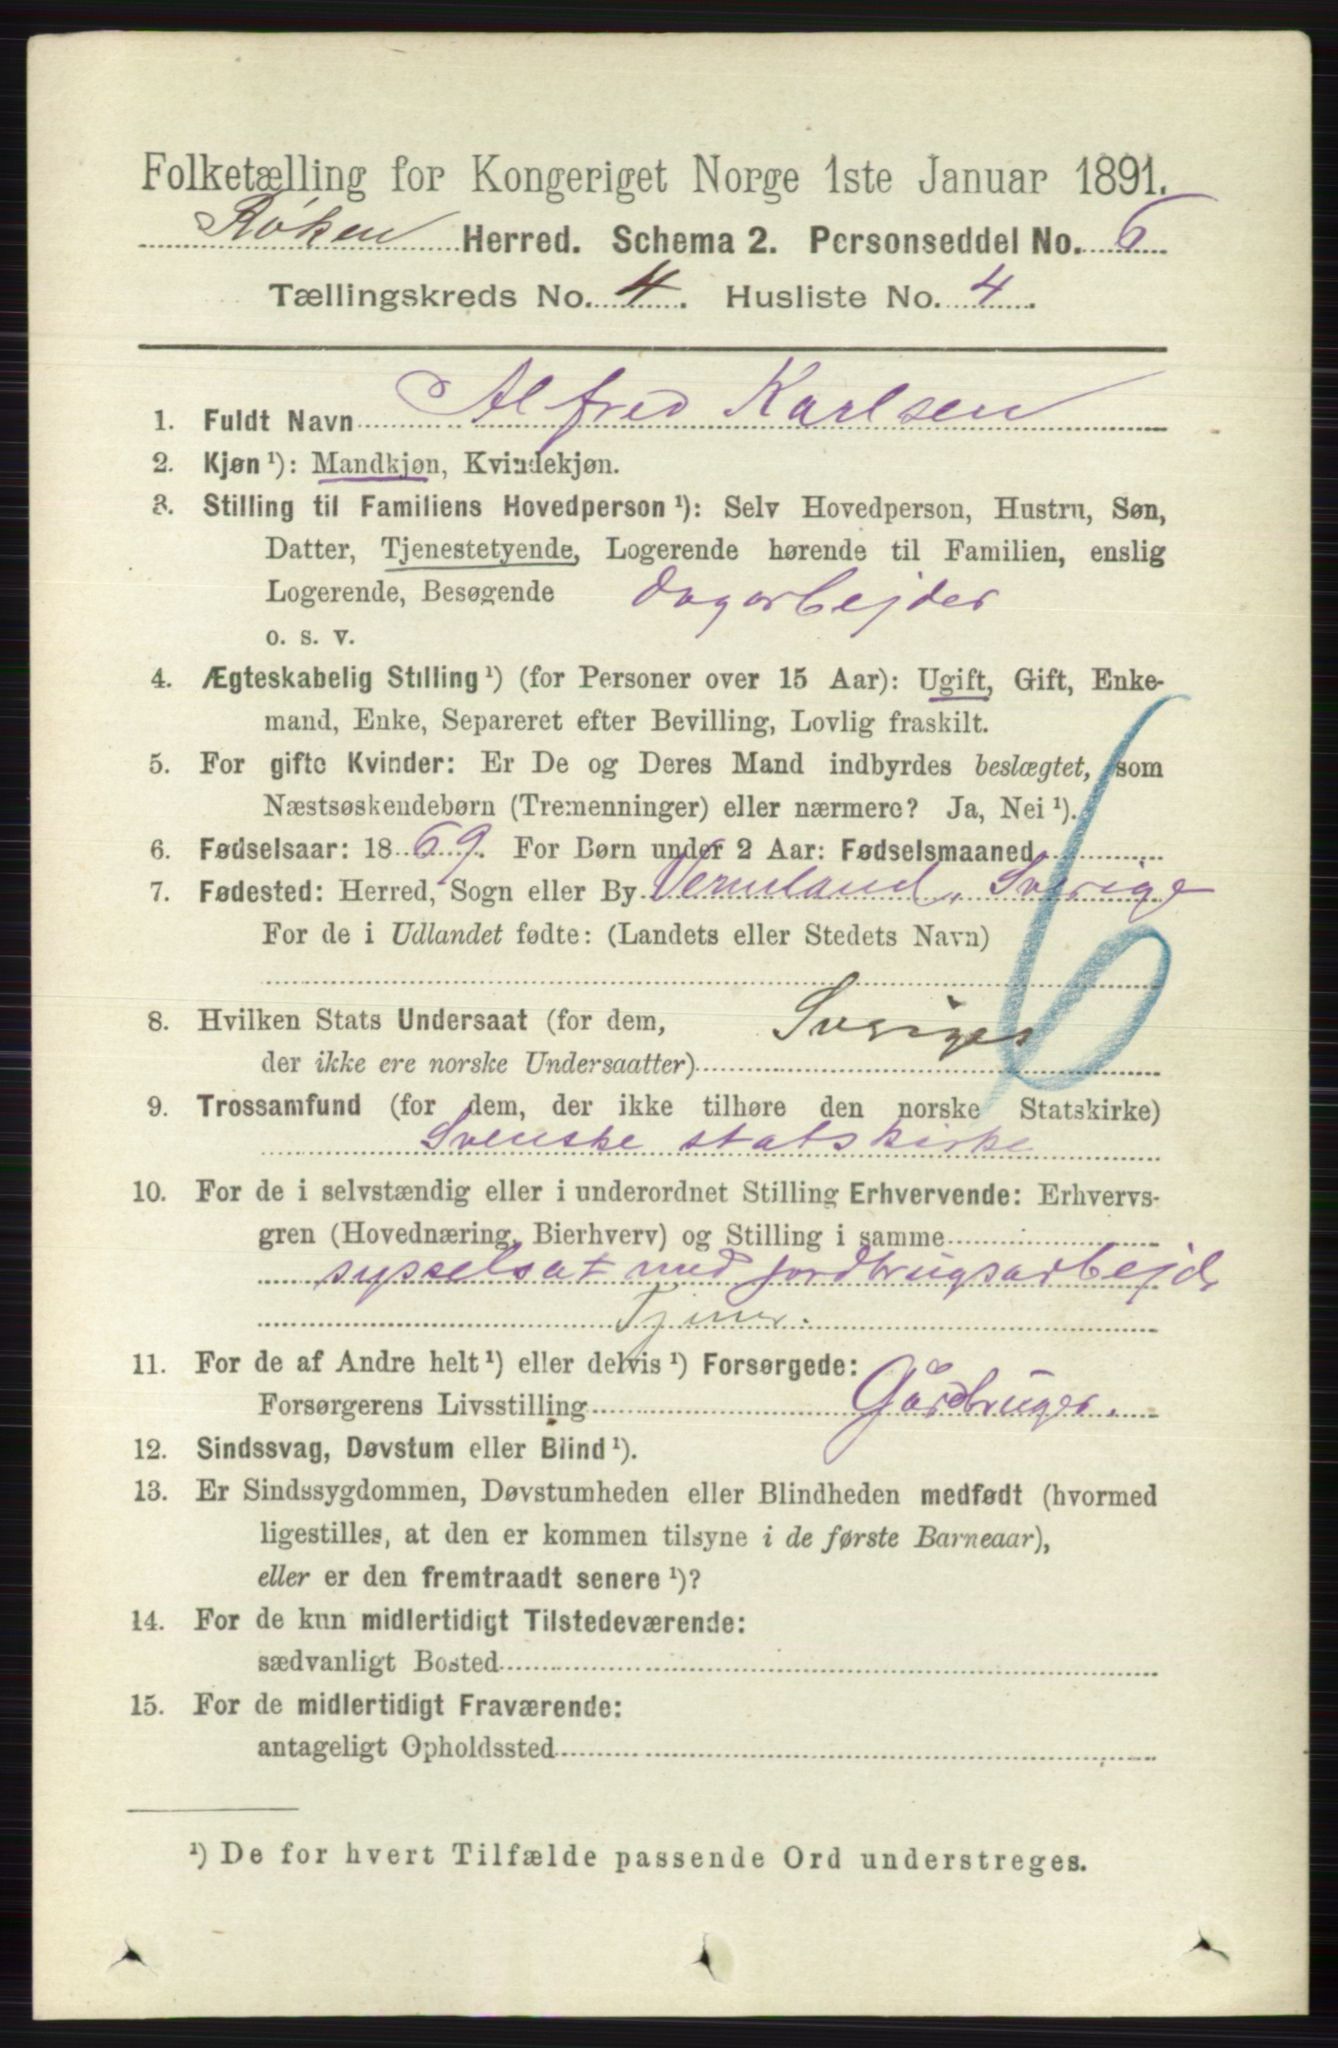 Folketælling for Kongeriget Norge 1ste Januar 1891.
Røken Herred. Schema 2. Personseddel No. 6
Tællingskreds No. 4. Husliste No. 4.
1. Fuldt Navn Alfred Karlsen
2. Kjøn ¹): Mandkjøn, Kvindekjøn.
3. Stilling til Familiens Hovedperson ¹): Selv Hovedperson, Hustru, Søn,
Datter, Tjenestetyende, Logerende hørende til Familien, enslig
Logerende, Besøgende dagarbejder
o. s. v.
4. Ægteskabelig Stilling ¹) (for Personer over 15 Aar): Ugift, Gift, Enke-
mand, Enke, Separeret efter Bevilling, Lovlig fraskilt.
5. For gifte Kvinder: Er De og Deres Mand indbyrdes beslægtet, som
Næstsøskendebørn (Tremenninger) eller nærmere? Ja, Nei ¹).
6. Fødselsaar: 1869. For Børn under 2 Aar: Fødselsmaaned
7. Fødested: Herred, Sogn eller By Vermland, Sverige
For de i Udlandet fødte: (Landets eller Stedets Navn)
6
8. Hvilken Stats Undersaat (for dem, Sveriges
der ikke ere norske Undersaatter)
9. Trossamfund (for dem, der ikke tilhøre den norske Statskirke)
Svenske statskirke
10. For de i selvstændig eller i underordnet Stilling Erhvervende: Erhvervs-
gren (Hovednæring, Bierhverv) og Stilling i samme
sysselsat med jordbrugsarbejde
Tjener.
11. For de af Andre helt ¹) eller delvis ¹) Forsørgede:
Forsørgerens Livsstilling Gårdbruger.
12. Sindssvag, Døvstum eller Blind ¹).
13. Er Sindssygdommen, Døvstumheden eller Blindheden medfødt (hvormed
ligestilles, at den er kommen tilsyne i de første Barneaar),
eller er den fremtraadt senere ¹)?
14. For de kun midlertidigt Tilstedeværende:
sædvanligt Bosted
15. For de midlertidigt Fraværende:
antageligt Opholdssted
¹) De for hvert Tilfælde passende Ord understreges.